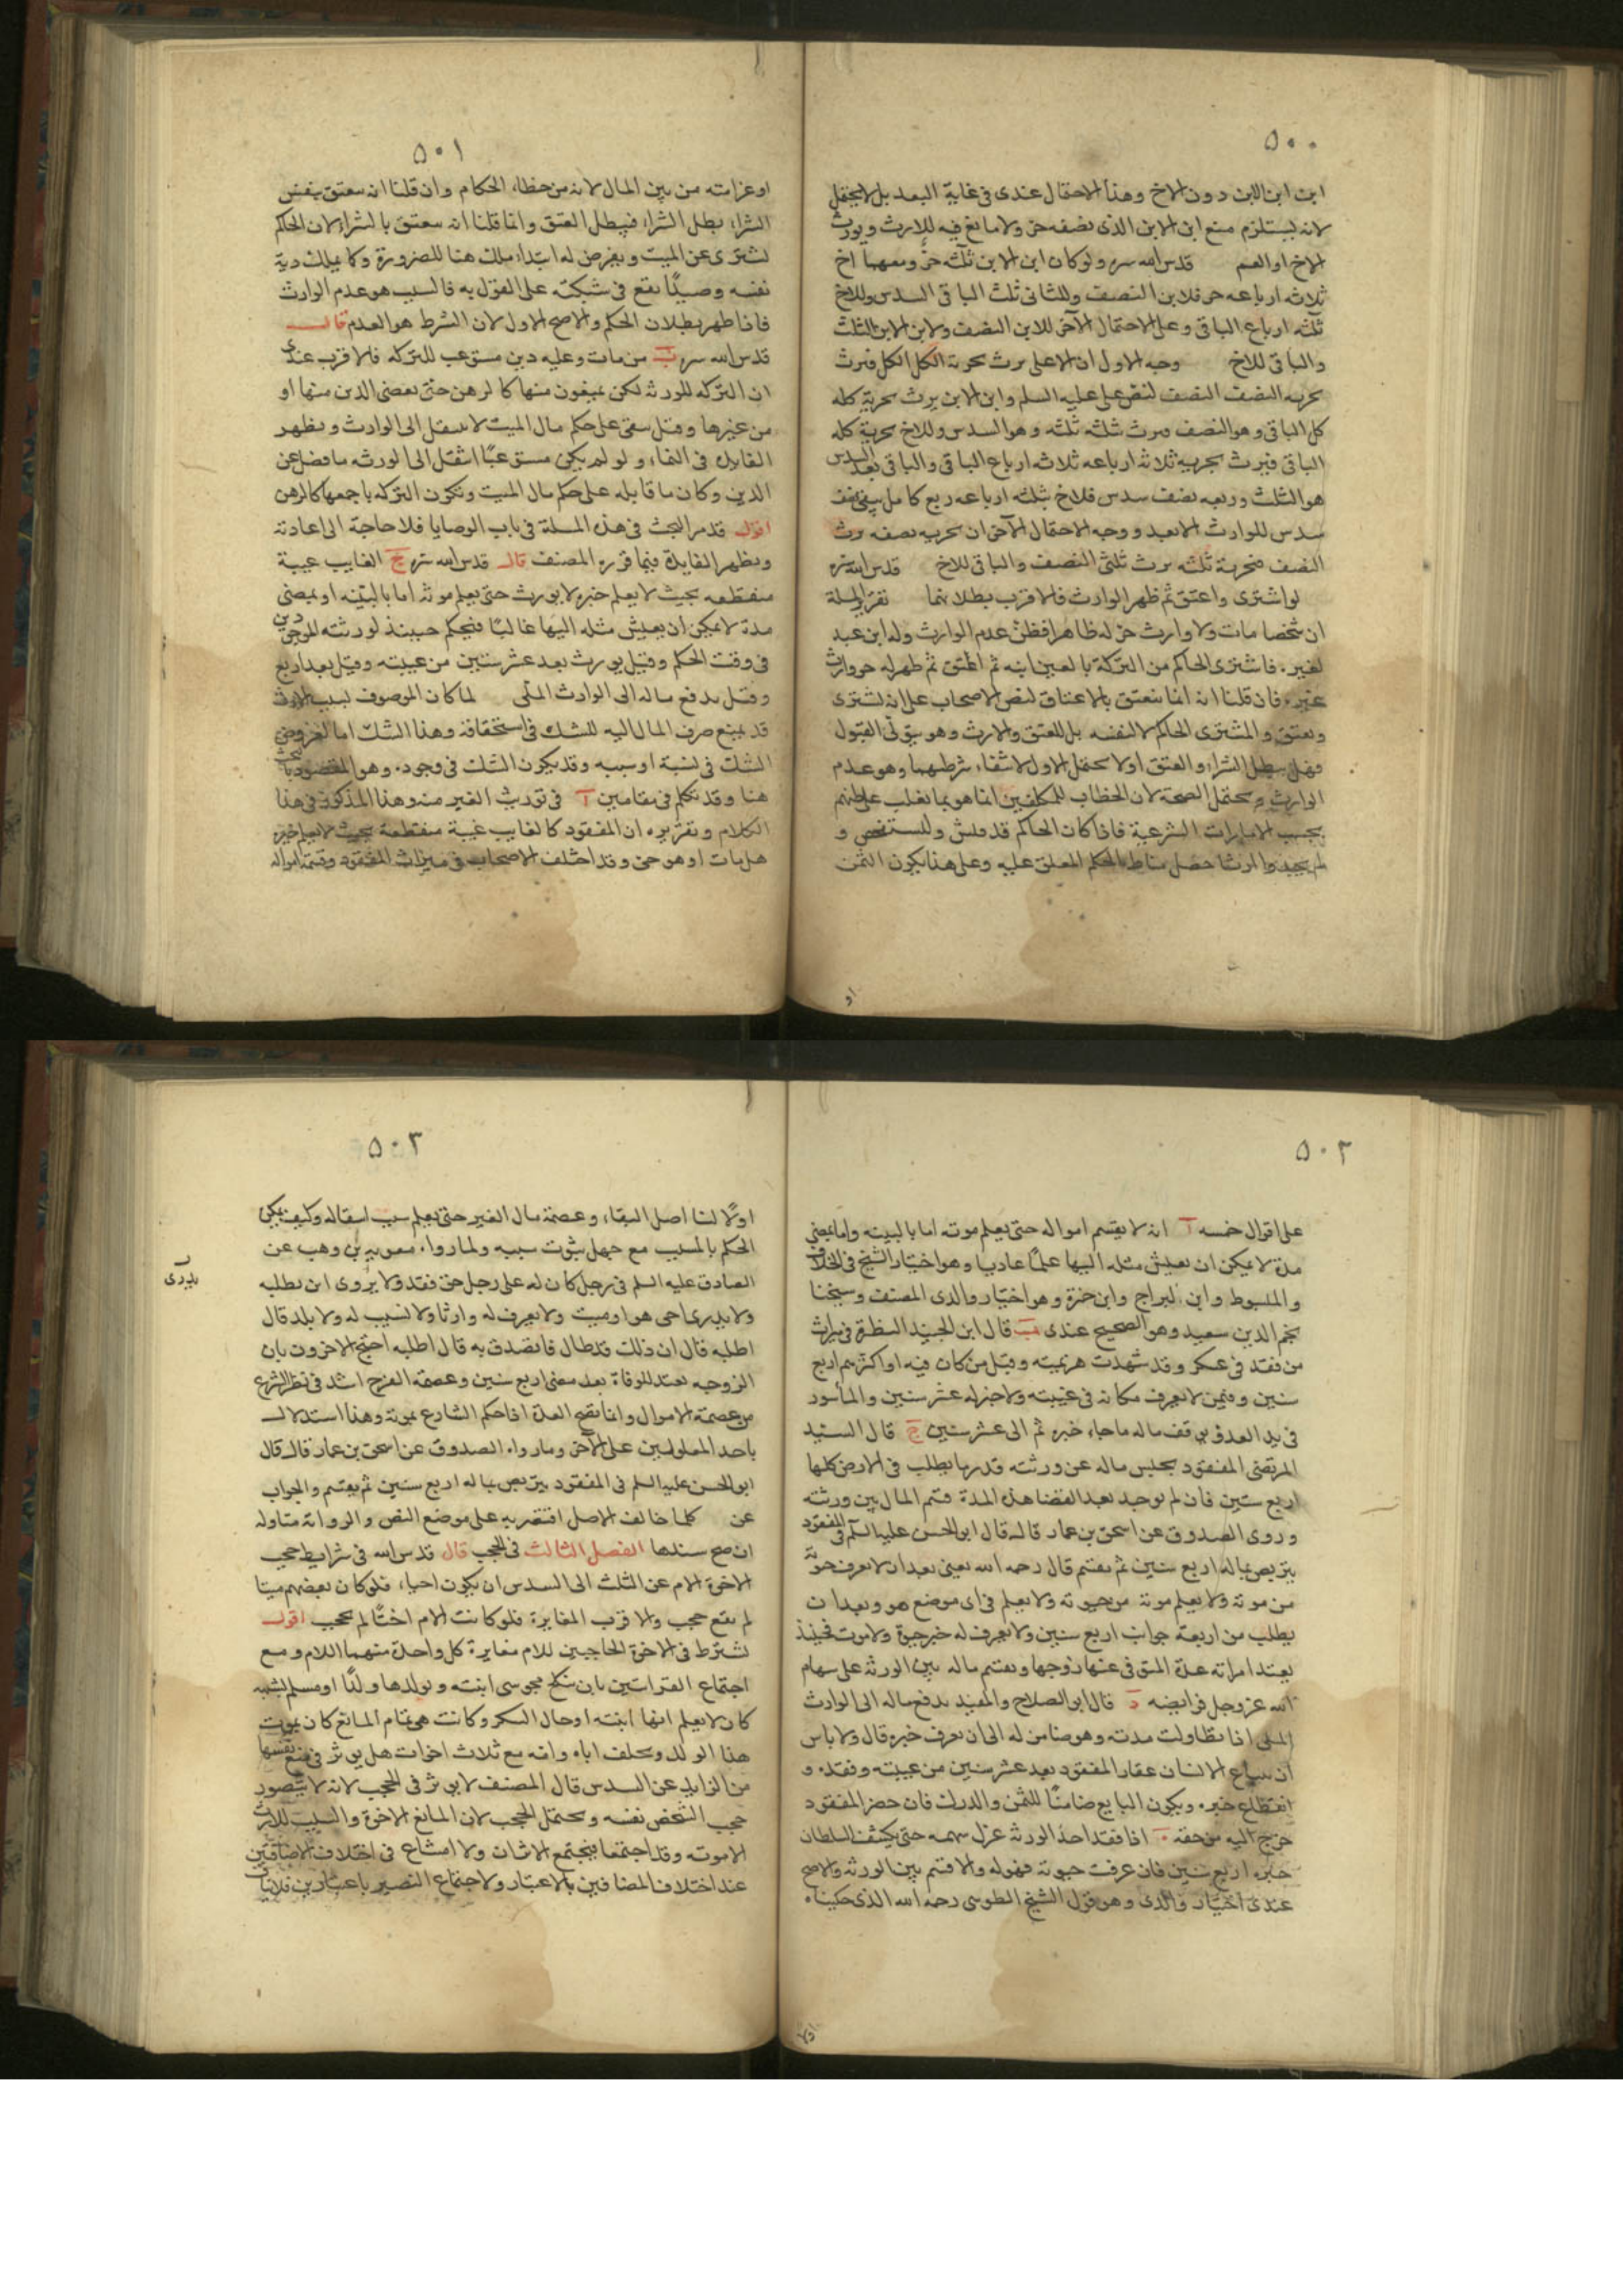 ٥٠٠
ابن ابن الابن دون الاخ وهذا الاحتمال عندى فى غاية البعد بل لا يحتمل
لانه يستلزم منع ابن الابن الذى نصفه حر ولا مانع فيه للارث ويورث
الاخ او العم قدس الله سره ولو كان ابن الابن ثلثه حر ومعهما اخ
ثلاثه ارباعه حر فلابن النصف وللثانى ثلث الباقى السدس وللاخ
ثلثه ارباع الباقى وعلى الاحتمال الآخر للابن النصف ولابن الابن الثلث
والباقى للاخ وجه الاول ان الاعلى يرث بحرية الكل الكل فيرث
بحريه النصف النصف لنص على عليه السلم وابن الابن يرث بحرية كله
كل الباقى وهو النصف فيرث بثلثه ثلثه وهو السدس وللاخ بحرية كله
الباقى فيرث بحرية ثلاثة ارباعه ثلاثه ارباع الباقى والباقى بعد السدس
هو الثلث وربعه نصف سدس فللاخ بثلثه ارباعه ربع كامل يبقى نصف
سدس للوارث الابعد ووجه الاحتمال الآخر ان بحريه نصفه يرث
النصف فبحرية ثلثه يرث ثلثى النصف والباقى للاخ قدس الله سره
لو اشترى واعتق ثم ظهر الوارث فالاقرب بطلانهما تقرير المسلة
ان شخصا مات ولا وارث حر له ظاهرا فظن عدم الوارث وله ابن عبد
لغيره فاشترى الحاكم من التركة بالعين ابنه ثم اعتق ثم ظهر له حر وارث
غيره فان قلنا انه انما ينعتق بالاعتاق لنص الاصحاب على انه يشترى
ويعتق والمشترى الحاكم لا لنفسه بل للعتق والارث وهو يتولى القبول
فهل يبطل الشراء والعتق اولا يحتمل الاول لانتفاء شرطهما وهو عدم
الوارث ويحتمل الصحة لان الخطاب للمكلفين انما هو بما يغلب على ظنهم
بحسب الامارات الشرعية فاذا كان الحاكم قد فتش وللستفحص و
لم يجد وارثا حصل مناط الحكم المعلق عليه وعلى هذا يكون الثمن
او
٥٠١
او غرامته من بين المال لانه من خطاء الحكام وان قلنا انه ينعتق بنفس
الشراء بطل الشراء فيبطل العتق وانما قلنا انه ينعتق بالشراء لان الحاكم
يشترى عن الميت ويفرض له ابتداء ملك هنا للضرورة وكما يملك دية
نفسه وصيدًا يقع فى شبكته على القول به فالسبب هو عدم الوارث
فاذا ظهر بطلان الحكم والاصح الاول لان الشرط هو العدم قال
قدس الله سره ب من مات وعليه دين مستوعب للتركه فالاقرب عندى
ان التركه للورثه لكن يمنعون منها كالرهن حتى يقضى الدين منها او
من غيرها وقيل يبقى على حكم مال الميت لا ينتقل الى الوارث ويظهر
الفايدة فى النماء ولو لم يكن مستوعبًا انتقل الى الورثه ما فضل عن
الدين وكان ما قابله على حكم مال الميت وتكون التركه باجمعها كالرهن
اقول قد مر البحث فى هذه المسلة فى باب الوصايا فلا حاجة الى اعادته
ويظهر الفايدة فيما قرره المصنف قال قدس الله سره ج الغايب غيبة
منقطعه بحيث لا يعلم خبره لا يورث حتى يعلم موته اما بالبينه او بمضى
مدة لا يمكن ان يعيش مثله اليها غالبًا فيحكم حينئذ لورثته الموجودين
فى وقت الحكم وقيل يورث بعد عشر سنين من غيبته وقيل بعد اربع
وقيل يدفع ماله الى الوارث الملى لما كان الموصوف بسبب الارث
قد يمنع صرف المال اليه للشك فى استحقاقه وهذا الشك اما لعروض
الشك فى نسبة او سببه وقد يكون الشك فى وجوده وهو المقصود بالبحث
هنا وقد نتكلم فى مقامين آ فى توريث الغير منه وهذا المذكور فى هذا
الكلام وتقريره ان المفقود كالغايب غيبة منقطعة بحيث لا يعلم خبره
هل مات او هو حى وقد اختلف الاصحاب فى ميراث المفقود وقسمة امواله
٥٠٢
على اقوال خمسه آ انه لا يقسم امواله حتى يعلم موته اما بالبينه واما بمضى
مدة لا يمكن ان يعيش مثله اليها علمًا عاديا وهو اختيار الشيخ فى الخلاف
والمبسوط وابن البراج وابن حمزة وهو اختيار والدى المصنف وشيخنا
نجم الدين سعيد وهو الصحيح عندى ب قال ابن الجنيد النظرة فى ميراث
من فقد فى عسكر وقد شهدت هزيمته وقيل من كان فيه او اكثرهم اربع
سنين وفيمن لا يعرف مكانه فى غيبته ولا خبر له عشر سنين والمأسور
فى يد العدو يوقف ماله ما جاء خبره ثم الى عشر سنين ج قال السيد
المرتضى المفقود يحبس ماله عن ورثته قدر ما يطلب فى الارض كلها
اربع سنين فان لم يوجد بعد انقضا هذه المدة قسم المال بين ورثته
وروى الصدوق عن اسحق بن عمار قال قال ابو الحسن عليه السلم فى المفقود
يتربص بماله اربع سنين ثم يقسم قال رحمه الله يعنى بعد ان لا يعرف حيوته
من موته ولا يعلم موته من حيوته ولا يعلم فى اى موضع هو وبعد ان
يطلب من اربعة جوانب اربع سنين ولا يعرف له خبر حيوة ولا موت فحينئذ
يعتد امراته عدة المتوفى عنها زوجها ويقسم ماله بين الورثه على سهام
الله عز وجل فرايضه د قال ابو الصلاح والمفيد يدفع ماله الى الوارث
الملى اذا تطاولت مدته وهو ضامن له الى ان يعرف خبره قال ولا باس
ان يبتاع الانسان عقار المفقود بعد عشر سنين من غيبته وفقده و
انقطاع خبره ويكون البايع ضامنًا للثمن والدرك فان حضر المفقود
خرج اليه من حقه ه اذا فقد احد الورثه عزل سهمه حتى يكشف السلطان
خبره اربع سنين فان عرفت حيوته فهو له والا قسم بين الورثه والاصح
عندى اختيار والدى وهو قول الشيخ الطوسى رحمه الله الذى حكيناه
اولا
٥٠٣
اولًا لنا اصل البقاء وعصمة مال الغير حتى يعلم سبب انتقاله وكيف يمكن
الحكم بالمسبب مع جهل ثبوت سببه ولما رواه معويه بن وهب عن
الصادق عليه السلم فى رجل كان له على رجل حق ففقد ولا يروى اين يطلبه
ولا يدرى احى هو ام ميت ولا يعرف له وارثا ولا نسيب له ولا بلد قال
اطلبه قال ان ذلك قد طال فاتصدق به قال اطلبه احتج الاخرون بان
الزوجيه تعتد للوفاة بعد مضى اربع سنين وعصمة الفرج اشد فى نظر الشرع
من عصمة الاموال وانما تصح العدة اذا حكم الشارع بموته وهذا استدلال
باحد المعلولين على الآخر وما رواه الصدوق عن اسحق بن عمار قال قال
ابو الحسن عليه السلم فى المفقود يتربص بماله اربع سنين ثم يقسم والجواب
عن كلما خالف الاصل اقتصر به على موضع النص والرواية متاوله
ان صح سندها الفصل الثالث فى الحجب قال قدس الله فى شرايط حجب
الاخوة الام عن الثلث الى السدس ان يكون احياء فلو كان بعضهم ميتا
لم يقع حجب والاقرب المغايرة فلو كانت الام اختًا لم يحجب اقول
يشترط فى الاخوة الحاجبين للام مغايرة كل واحدة منهما للام ومع
اجتماع القرابتين بان ينكح مجوسى ابنته ويولدها ولدًا او مسلم لشبهه
كان لا يعلم انها ابنته او حال السكر وكانت هى تمام المانع كان يموت
هذا الولد ويخلف اباه وامه مع ثلاث اخوات هل يوثر فى منع نفسها
من الزايد عن السدس قال المصنف لا يوثر فى الحجب لانه لا يتصور
حجب الشخص نفسه ويحتمل الحجب لان المانع الاخوة والسبب للارث
الامومه وقد اجتمعا فيجتمع الاثران ولا امتناع فى اختلاف الاضافتين
عند اختلاف المضافين بالاعتبار ولاجتماع النصير باعتبارين
يدرى